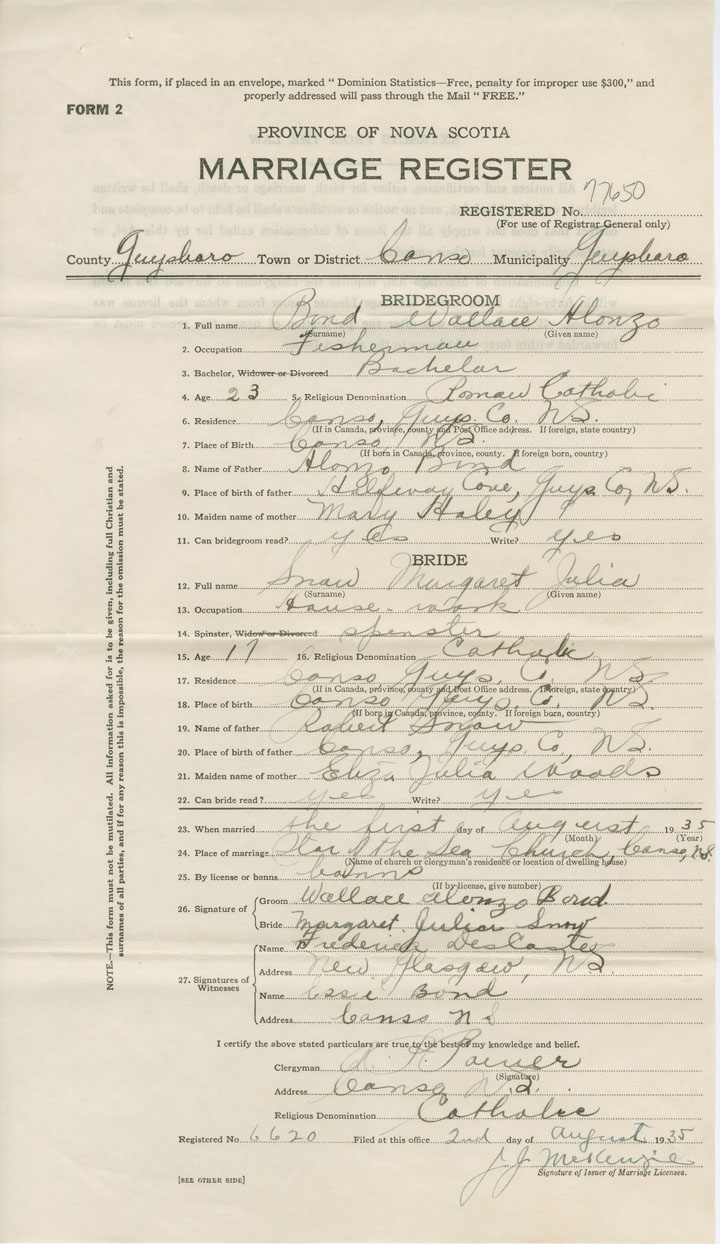 This form, if placed in an envelope, marked " Dominion Statistics—Free, penalty for improper use $300," and
properly addressed will pass through the Mail " FREE."
FORM 2
PROVINCE OF NOVA SCOTIA
MARRIAGE REGISTER
77650
REGISTERED No.
(For use of Registrar General only)
County Guysboro Town or District Canso Municipality Guysboro
BRIDEGROOM
1. Full name Bond Wallace Alonzo
(Surname) (Given name)
2. Occupation Fisherman
3. Bachelor, Widower or Divorced Bachelor
4. Age 23 5. Religious Denomination Roman Catholic
6. Residence Canso, Guys. Co. NS.
(If in Canada, province, county and Post Office address. If foreign, state country)
7. Place of Birth Canso NS.
(If born in Canada, province, county. If foreign born, country)
8. Name of Father Alonzo Bond
9. Place of birth of father Halfway Cove, Guys. Co, NS.
10. Maiden name of mother Mary Haley
11. Can bridegroom read? yes Write? yes
BRIDE
12. Full name Snow Margaret Julia
(Surname) (Given name)
13. Occupation House-work
14. Spinster, Widow or Divorced spinster
15. Age 17 16. Religious Denomination Catholic
17. Residence Canso Guys. Co, NS
(If in Canada, province, county and Post Office address. If foreign, state country)
18. Place of birth Canso Guys. Co. NS.
(If born in Canada, province, county. If foreign born, country)
19. Name of father Robert Snow
20. Place of birth of father Canso, Guys. Co, NS.
21. Maiden name of mother Eliza Julia Woods
22. Can bride read? yes Write? yes
23. When married the first day of August 1935
(Month) (Year)
24. Place of marriage Star of the Sea Church, Canso, NS.
(Name of church or clergyman's residence or location of dwelling house)
25. By license or banns banns
(If by license, give number)
26. Signature of
Groom Wallace Alonzo Bond.
Bride Margaret Julia Snow
27. Signatures of Witnesses
Name Frederick DesCastes
Address New Glasgow, NS.
Name Essie Bond
Address Canso N S
I certify the above stated particulars are true to the best of my knowledge and belief.
Clergyman
(Signature)
Address Canso N.S.
Religious Denomination Catholic
Registered No. 6620 Filed at this office 2nd day of August 1935
J. J. McKenzie
Signature of Issuer of Marriage Licenses.
[SEE OTHER SIDE]
NOTE.—This form must not be mutilated. All information asked for is to be given, including full Christian and
surnames of all parties, and if for any reason this is impossible, the reason for the omission must be stated.